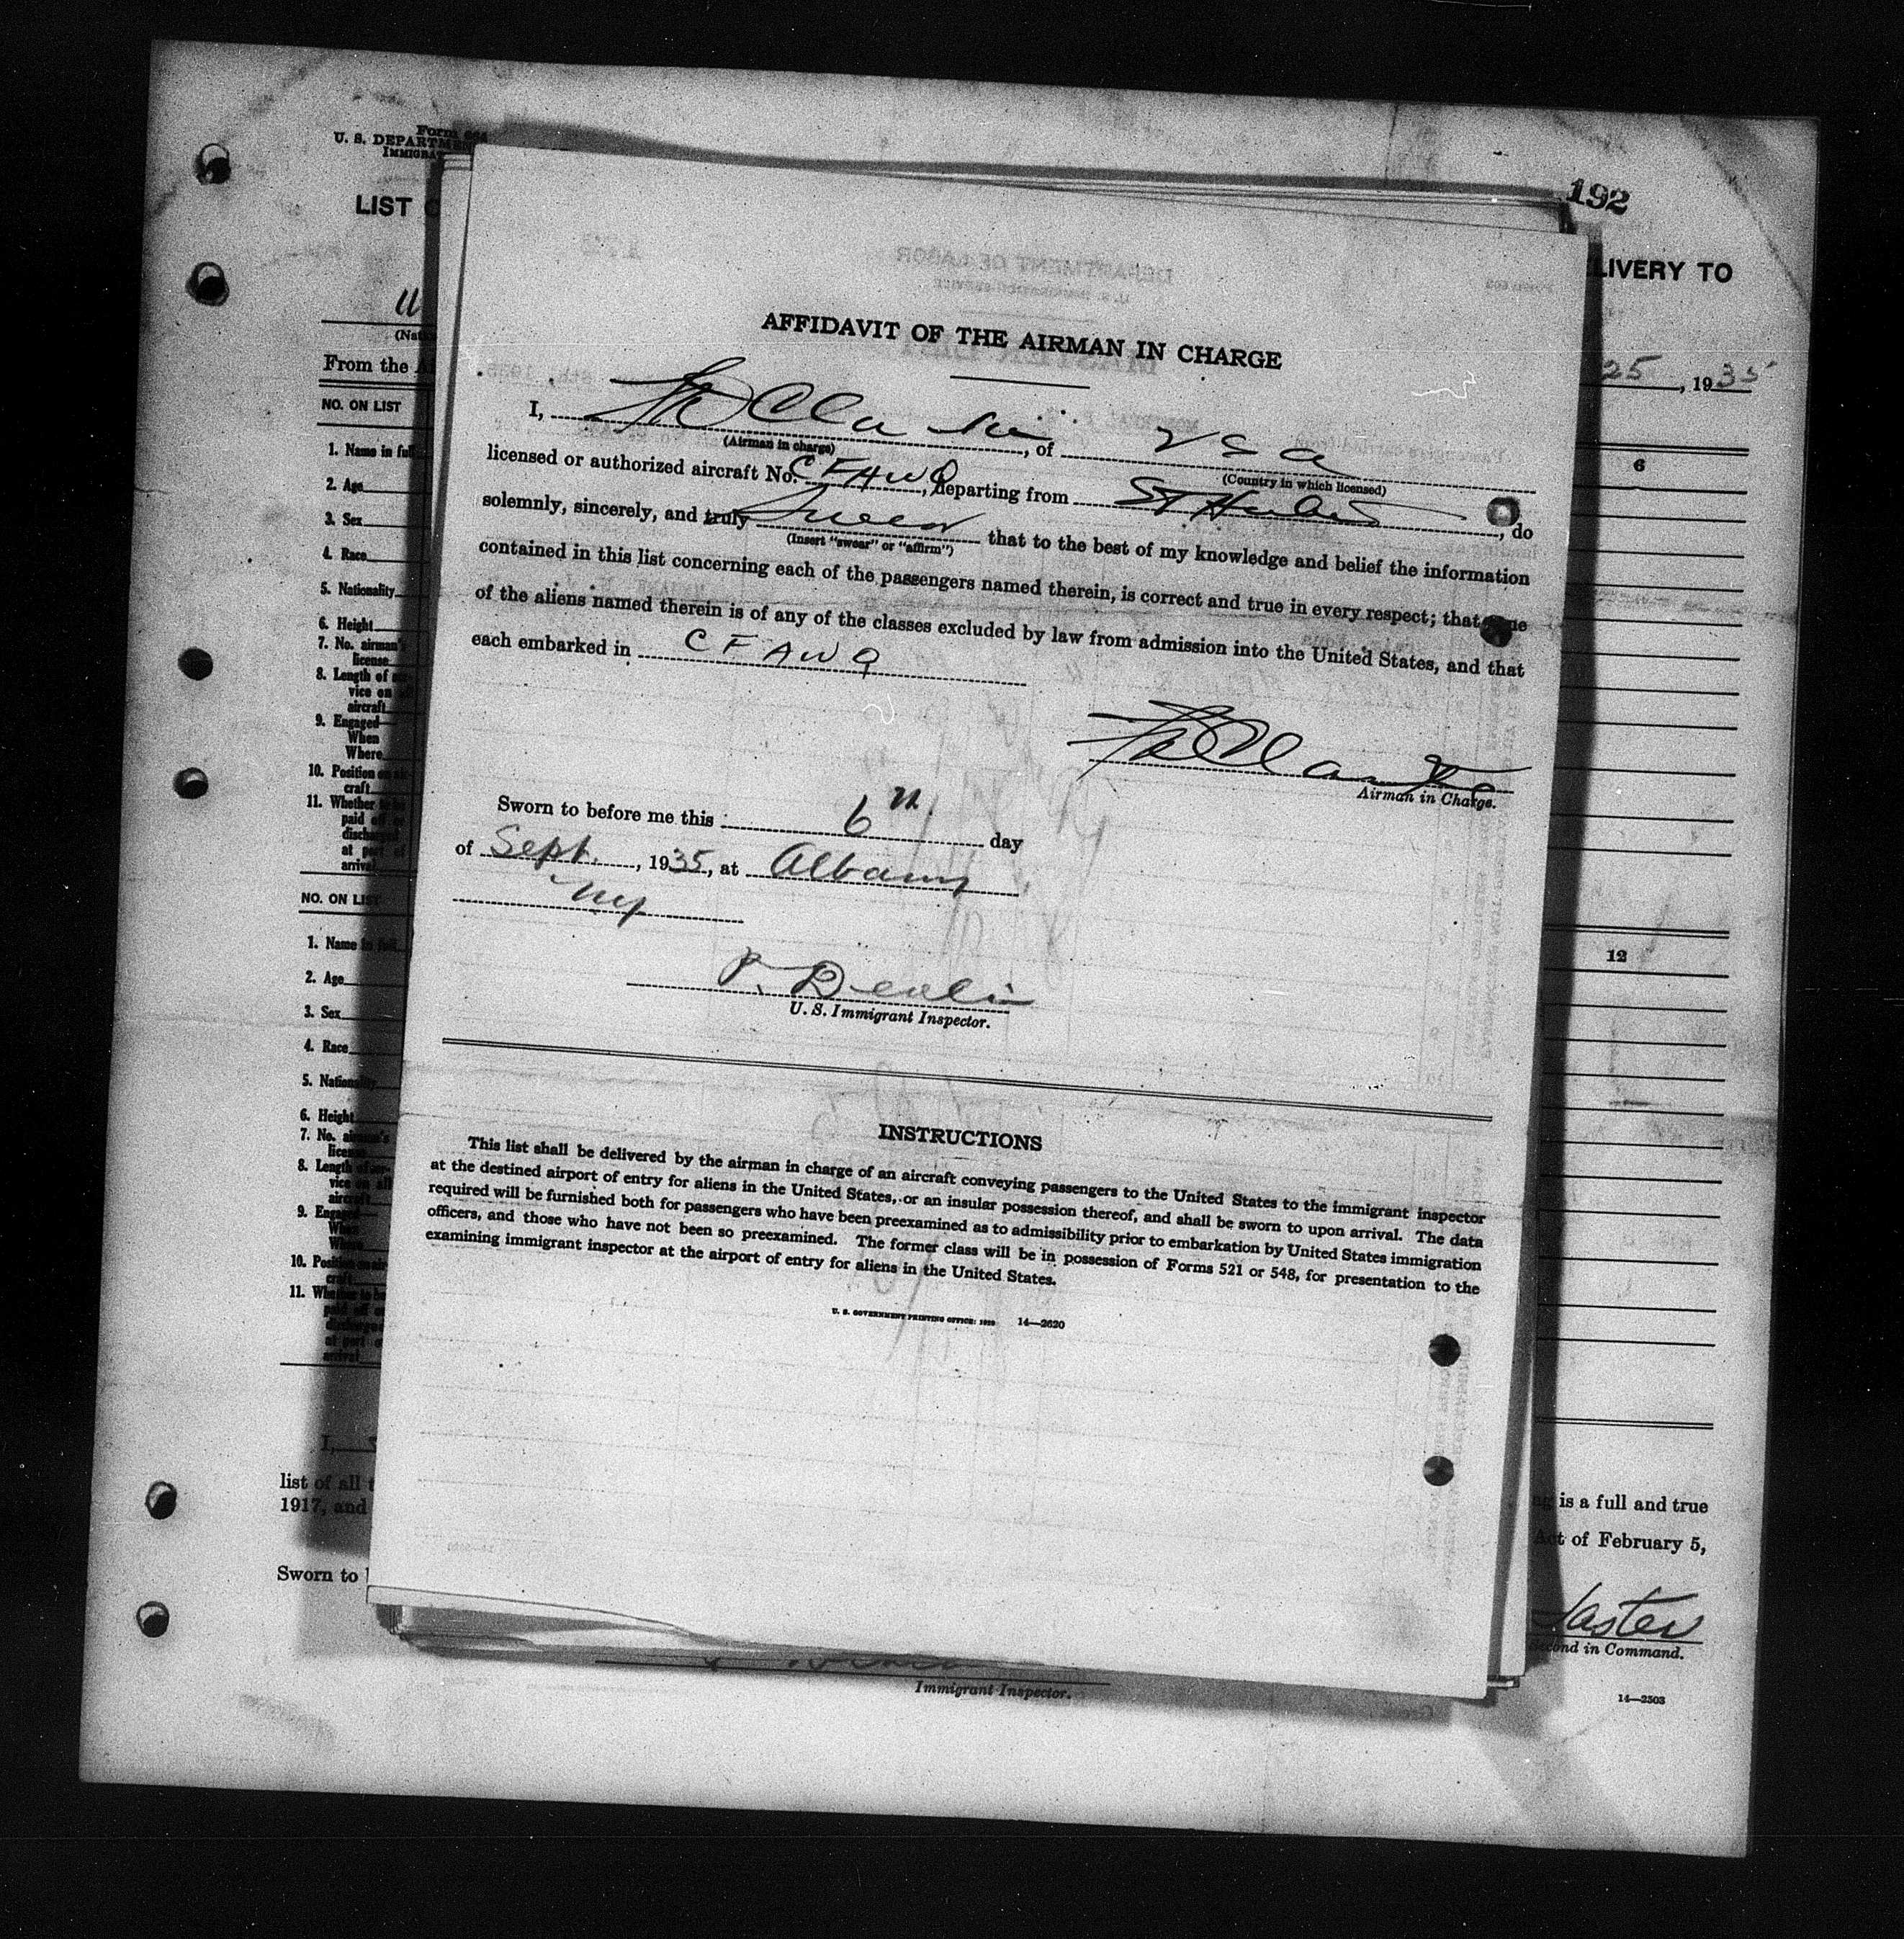 Form
U. S. DEPARTMEN
IMMIGRAT
LIST
192
LIVERY TO
From the
25, 1935
NO. ON LIST
1. Name in full
2. Age
3. Sex
4. Race
5. Nationality
6. Height
7. No. airman's
license
8. Length of ser-
vice on
aircraft
9. Engaged—
When
Where
10. Position on air-
craft
11. Whether to be
paid off or
discharged
at port of
arrival
6
NO. ON LIST
1. Name in full
2. Age
3. Sex
4. Race
5. Nationality
6. Height
7. No. airman's
license
8. Length of ser-
vice on
aircraft
9. Engaged
When
Where
10. Position on air-
craft
11. Whether to be
paid off or
discharged
at port of
arrival
12
I,
list of all
1917, and
Sworn to
is a full and true
Act of February 5,
Second in Command.
14—2503
AFFIDAVIT OF THE AIRMAN IN CHARGE
I, , of USA
(Airman in charge) (Country in which licensed)
licensed or authorized aircraft No. CFAWQ, departing from St Hubert, do
solemnly, sincerely, and truly swear that to the best of my knowledge and belief the information
(Insert "swear" or "affirm")
contained in this list concerning each of the passengers named therein, is correct and true in every respect; that
of the aliens named therein is of any of the classes excluded by law from admission into the United States, and that
each embarked in CFAWQ
Airman in Charge.
Sworn to before me this 6th day
of Sept., 1935, at Albany
NY
P. Devlin
U. S. Immigrant Inspector.
INSTRUCTIONS
This list shall be delivered by the airman in charge of an aircraft conveying passengers to the United States to the immigrant inspector
at the destined airport of entry for aliens in the United States, or an insular possession thereof, and shall be sworn to upon arrival. The data
required will be furnished both for passengers who have been preexamined as to admissibility prior to embarkation by United States immigration
officers, and those who have not been so preexamined. The former class will be in possession of Forms 521 or 548, for presentation to the
examining immigrant inspector at the airport of entry for aliens in the United States.
U. S. GOVERNMENT PRINTING OFFICE: 14—2620
Immigrant Inspector.